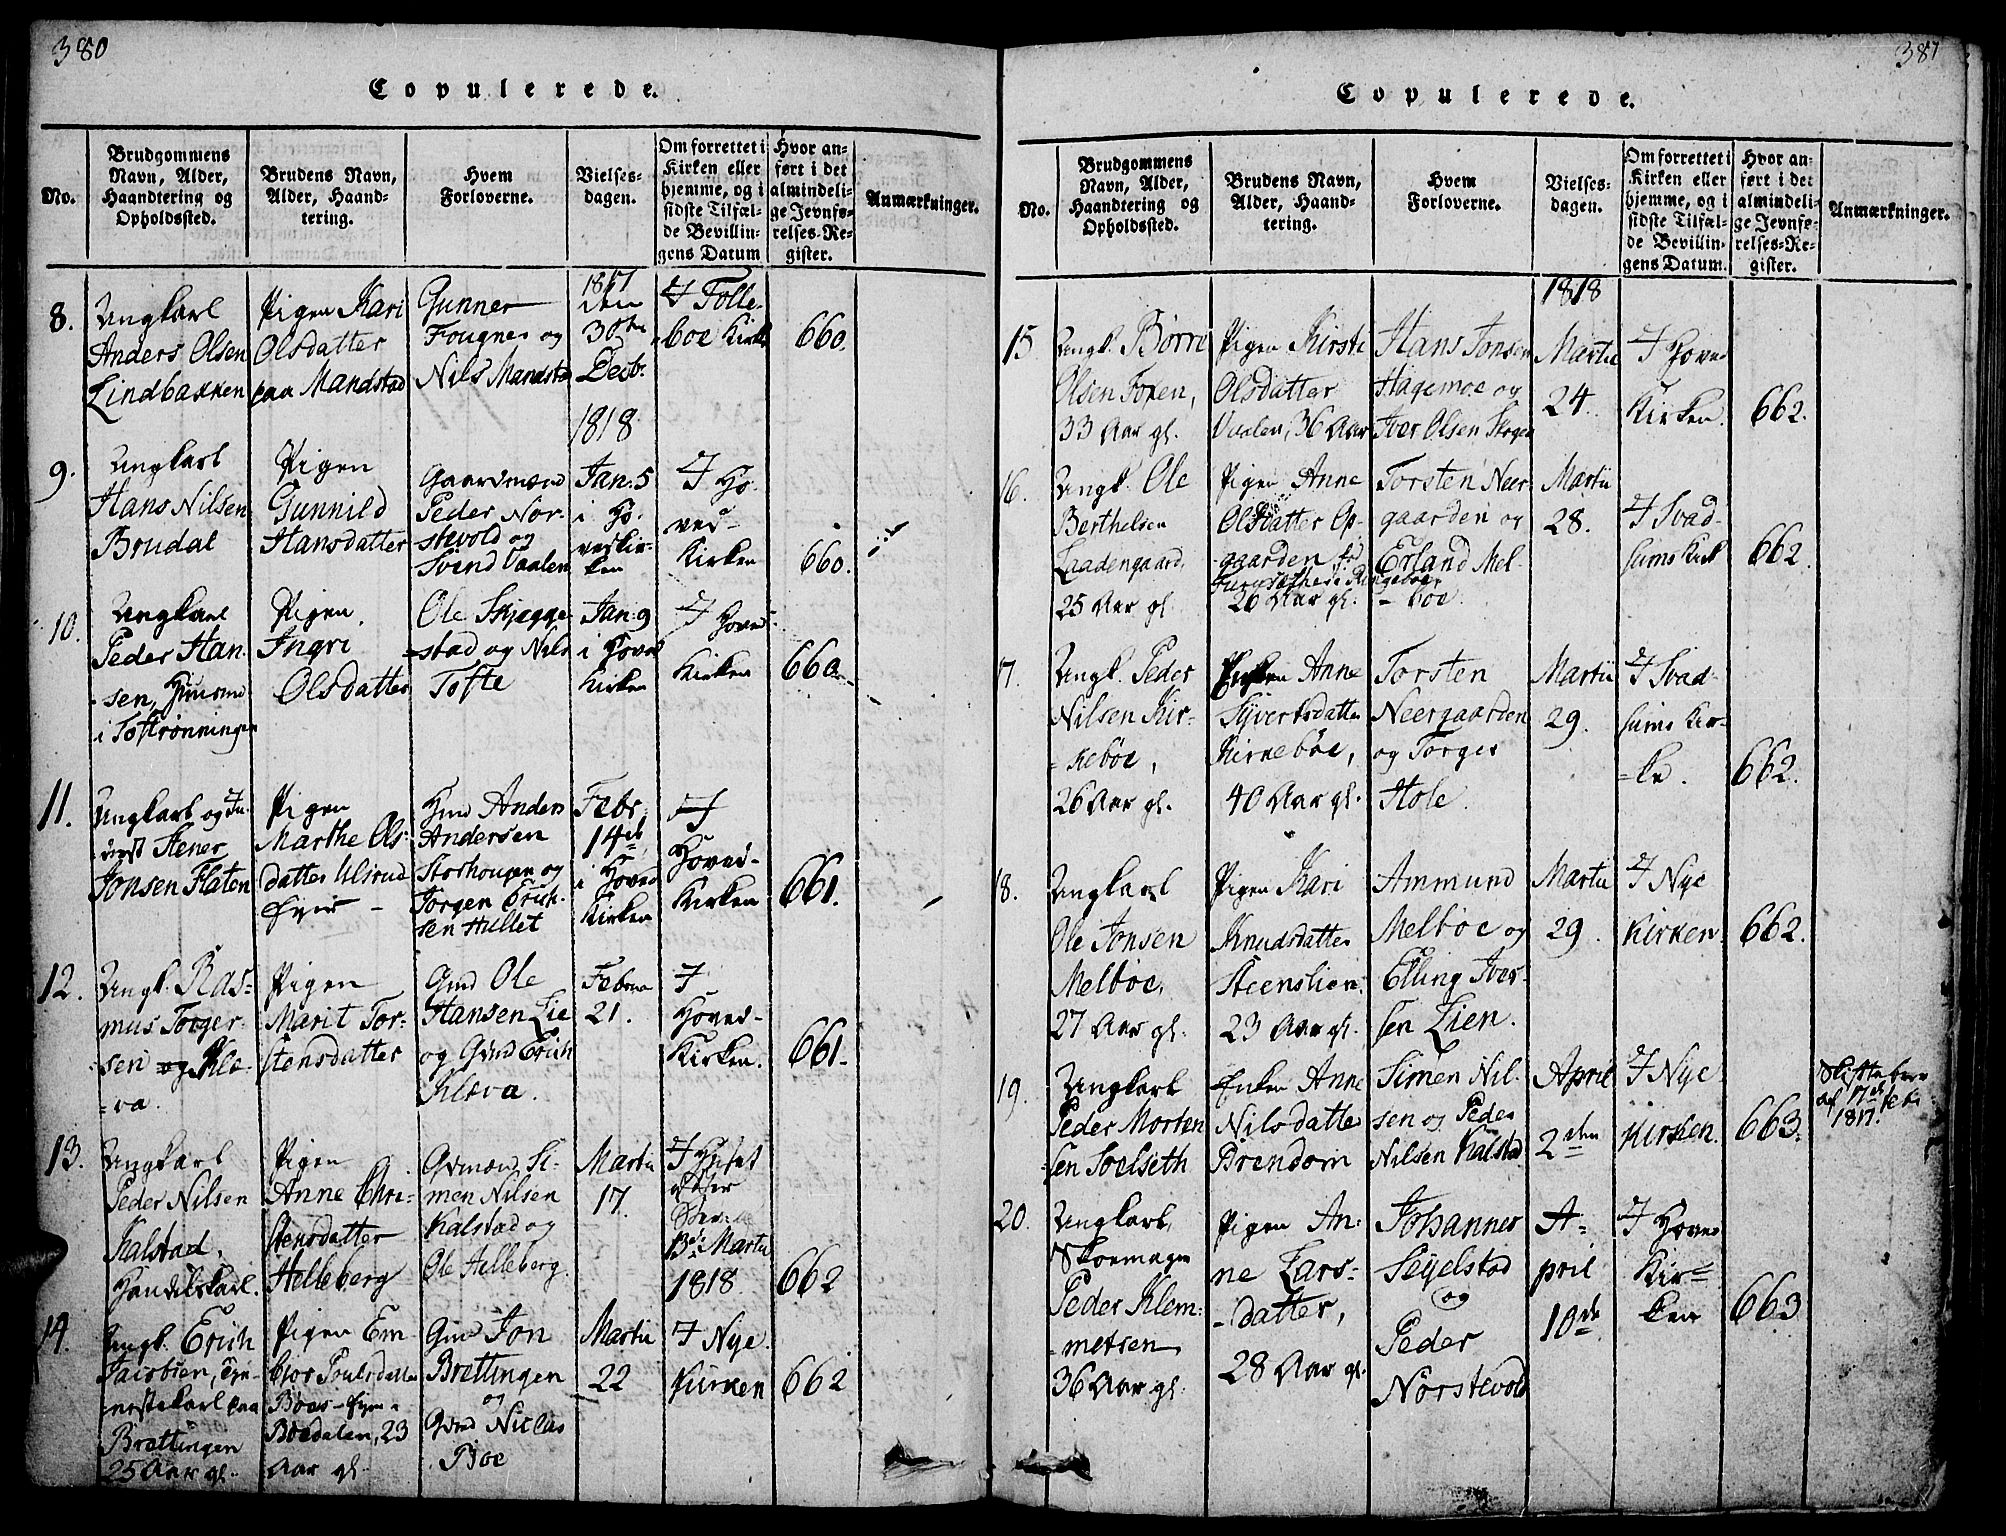 380
Copulerede.
No.
Brudgommens
Navn, Alder,
Haandtering og
Opholdssted.
Brudens Navn,
Alder, Haand-
tering.
Hvem
Forloverne.
Vielses-
dagen.
Om forrettet i
Kirken eller
hjemme, og i
sidste Tilfæl-
de Bevillin-
gens Datum
Hvor an-
ført i det
almindeli-
ge Jevnfø-
relses-Re-
gister.
Anmærkninger.
8.
Ungkarl
Anders Olsen
Lindbakken
Pigen Kari
Olsdatter
paa Mandstad
Gunner
Fougner og
Nils Mandstad
1817
den
30te
Decbr.
I Folle-
boe Kirke
660.
9.
Ungkarl
Hans Nilsen
Brudal
Pigen
Gunnild
Hansdatter
Gaardmænd
Peder Nor-
stevold og
Svend Vaalen
1818
Jan: 5
i Ho-
vedkir-
ken
I Ho-
ved-
Kirken
660.
10.
Ungkarl
Peder Han-
sen, Huusmd
i Toftrønningen
Pigen
Ingri
Olsdatter
Ole Skjegge-
stad og Nils
Tofte
Jan: 9
i Hoved
Kirken
I Hoved-
Kirken
660.
11.
Ungkarl og In-
derst Stener
Jonsen Flaten
Pigen
Marthe Ols-
datter Ulsrud
Eyer
Gmd Anders
Andersen
Storhougen og
Jorgen Erich-
sen Hullet
Febr.
14de
i Hoved
Kirken
I
Hoved-
Kirken
661.
12.
Ungk. Ras-
mus Torger-
sen og Kle-
va.
Pigen
Marit Tor-
stensdatter
Gmd Ole
Hansen Lie
og Gmd Erich
Kleva.
Februar
21.
I
Hoved-
Kirken.
661.
13.
Ungkarl
Peder Nilsen
Kalstad,
Handelskarl.
Pigen
Anne Chri-
stensdatter
Helleberg
Gdmænd Si-
men Nilsen
Kalstad og
Ole Helleberg.
Martii
17.
I Huset
efter
13de Martii
1818.
662
14.
Ungk. Erich
Jacobsen, tje-
nestekarl paa
Brettingen
25 Aar gl.
Pigen Em-
bjør Poulsdatter
Boes-Eyer
Boedalen, 23
Aar gl.
Gmd Jon
Brettingen
og
Gmd Niclas
Boe
Martii
22
I Nye
Kirken
662
381
Copulerede.
No.
Brudgommens
Navn, Alder,
Haandtering og
Opholdssted.
Brudens Navn,
Alder, Haand-
tering.
Hvem
Forloverne.
Vielses-
dagen.
Om forrettet i
Kirken eller
hjemme, og i
sidste Tilfæl-
de Bevillin-
gens Datum.
Hvor an-
ført i det
almindeli-
ge Jevnfø-
relses-Re-
gister.
Anmærkninger.
15
Ungk. Børre
Olsen Foxen,
33 Aar gl.
Pigen Kirsti
Olsdatter
Vaalen, 36 Aar
Hans Jonsen
Hagemoe og
Iver Olsen Skogen
1818
Martii
24.
I Hoved
Kirken.
662.
16.
Ungk. Ole
Berthelsen
Laadengaard,
25 Aar gl.
Pigen Anne
Olsdatter Op-
gaarden
26 Aar gl.
Torsten Neer-
gaarden og
Erland Mel-
boe.
Martii
28.
I Svad-
sums Kirk
662.
17.
Ungk. Peder
Nilsen Kir-
keboe,
26 Aar gl.
Enken Anne
Syvertsdatter
Kirkeboe,
40 Aar gl.
Torsten
Neergaarden
og Torger
Hole.
Martii
29.
I Svad-
sums Kir-
ke.
662.
18.
Ungkarl
Ole Jonsen
Melboe,
27 Aar gl.
Pigen Kari
Knudsdatter
Steenslien.
23 Aar gl.
Ammund
Melboe og
Elling Iver-
sen Lien.
Martii
29.
I Nye
Kirken
662.
19.
Ungkarl
Peder Morten-
sen Soelseth
Enken Anne
Nilsdatter
Brendom
Simen Nil-
sen og Peder
Nilsen Kalstad
April
2den
I Nye
Kirken.
663.
Skiftebrev
af 17de Febr
1817.
20.
Ungkarl,
Skoemager
Peder Klem-
metsen
36 Aar gl.
Pigen An-
ne Lars-
datter,
28 Aar gl.
Johannes
Segelstad
og
Peder
Norstevold
A-
pril
10de
I Hoved
Kir-
ken
663